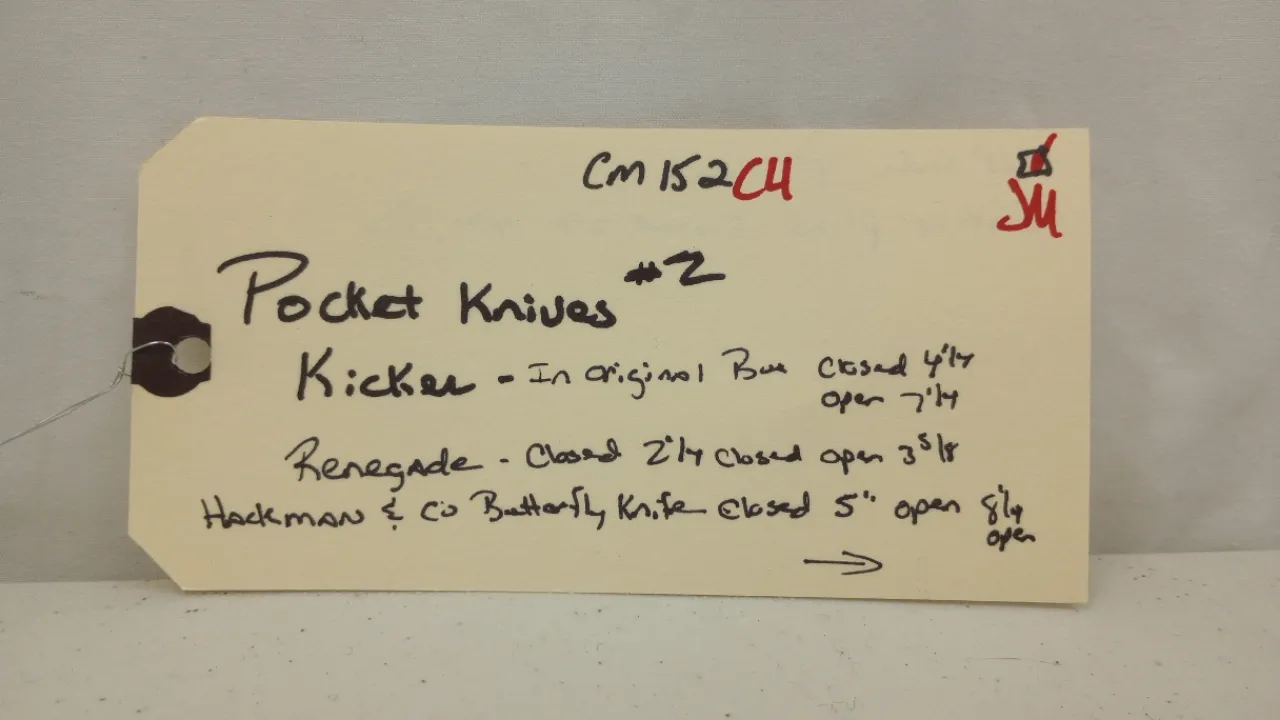 CM152CH
JM
Pocket Knives #2
Kicker - In Original Box closed 4 1/4
open 7 1/4
Renegade - Closed 2 1/4 closed open 3 5/8
Hackman & Co Butterfly Knife closed 5" open 8 1/4
open